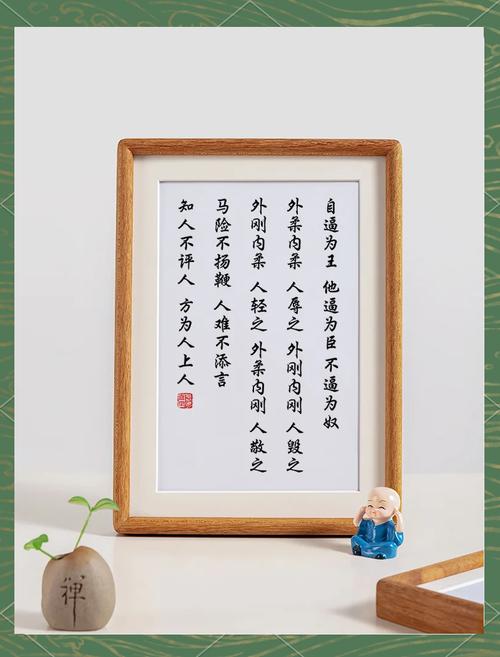 自逼为王 他逼为臣 不逼为奴
外柔内柔 人辱之 外刚内刚 人毁之
外刚内柔 人轻之 外柔内刚 人敬之
马险不扬鞭 人难不添言
知人不评人 方为人上人
禅